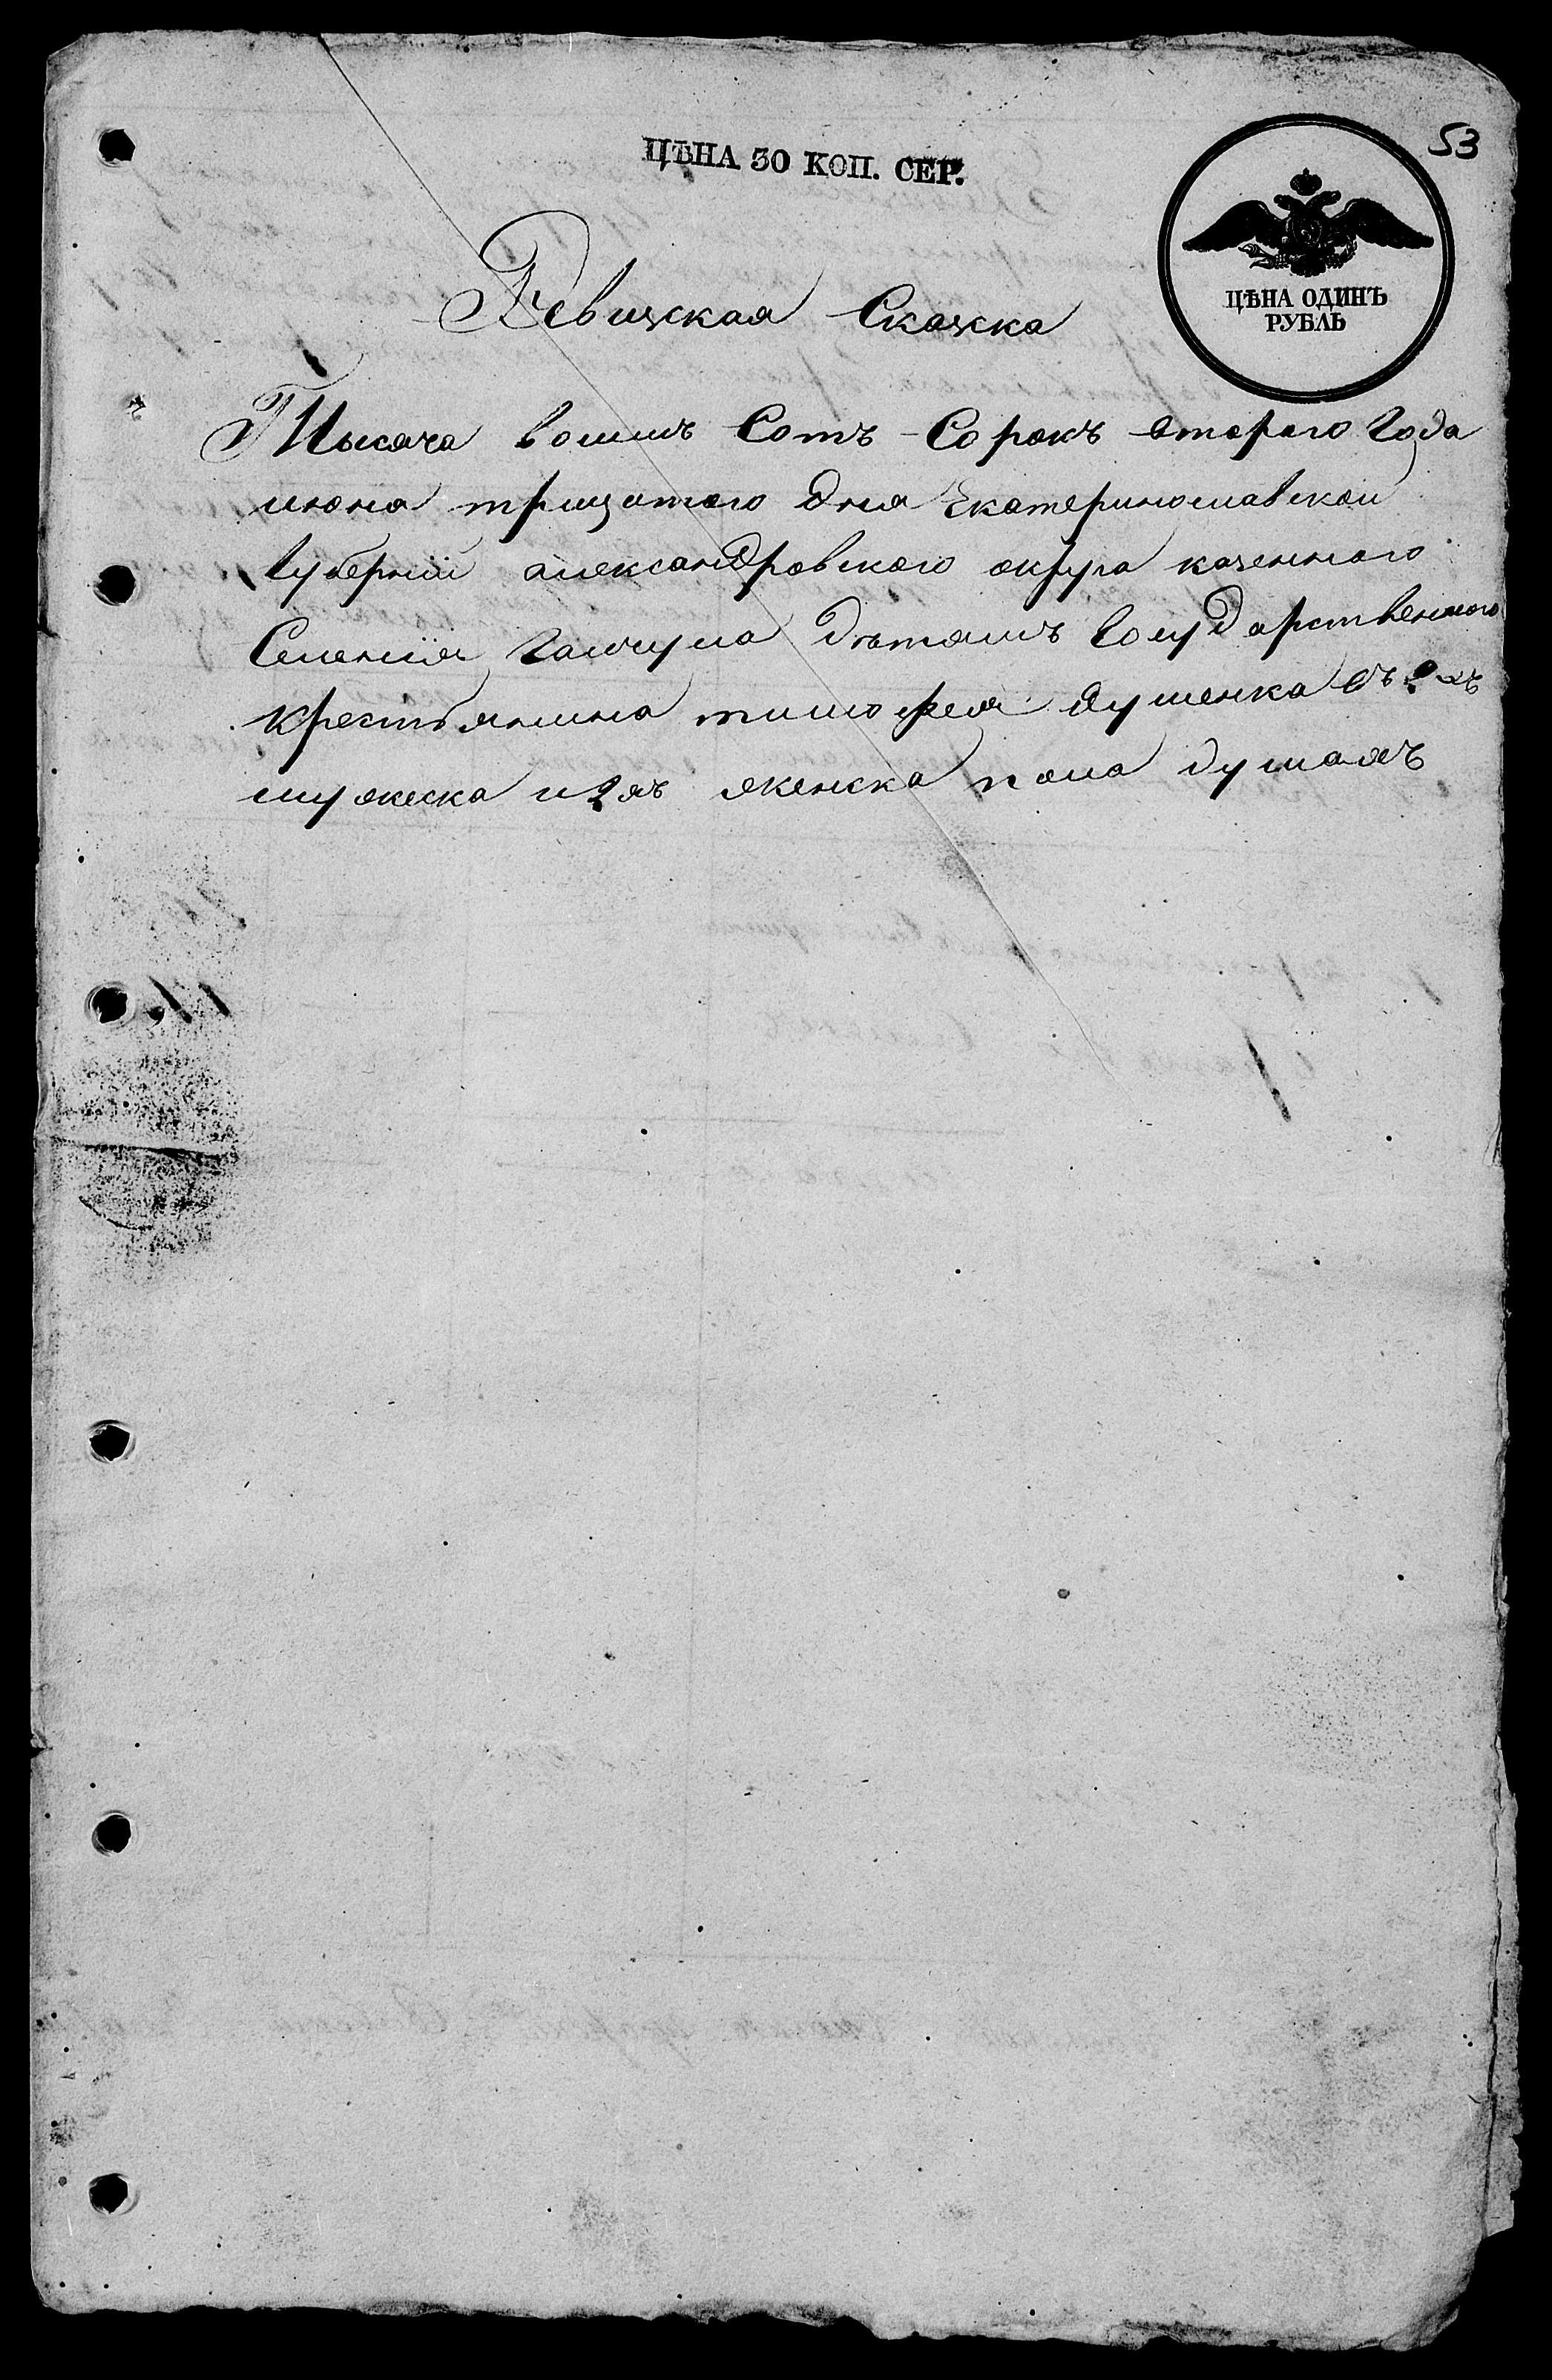 53
ЦѢНА 30 КОП. СЕР.
ЦѢНА ОДИНЪ
РУБЛЬ
Ревизская Сказка
Тысяча восимъ Сотъ Сорокъ второго Года
июня трицатого дня Екатеринославской
Губернии александровского округа казенного
Селения Гайчула дѣтямъ Государственного
крестьянина тимофея
мужеска и 2хъ женска пола душахъ